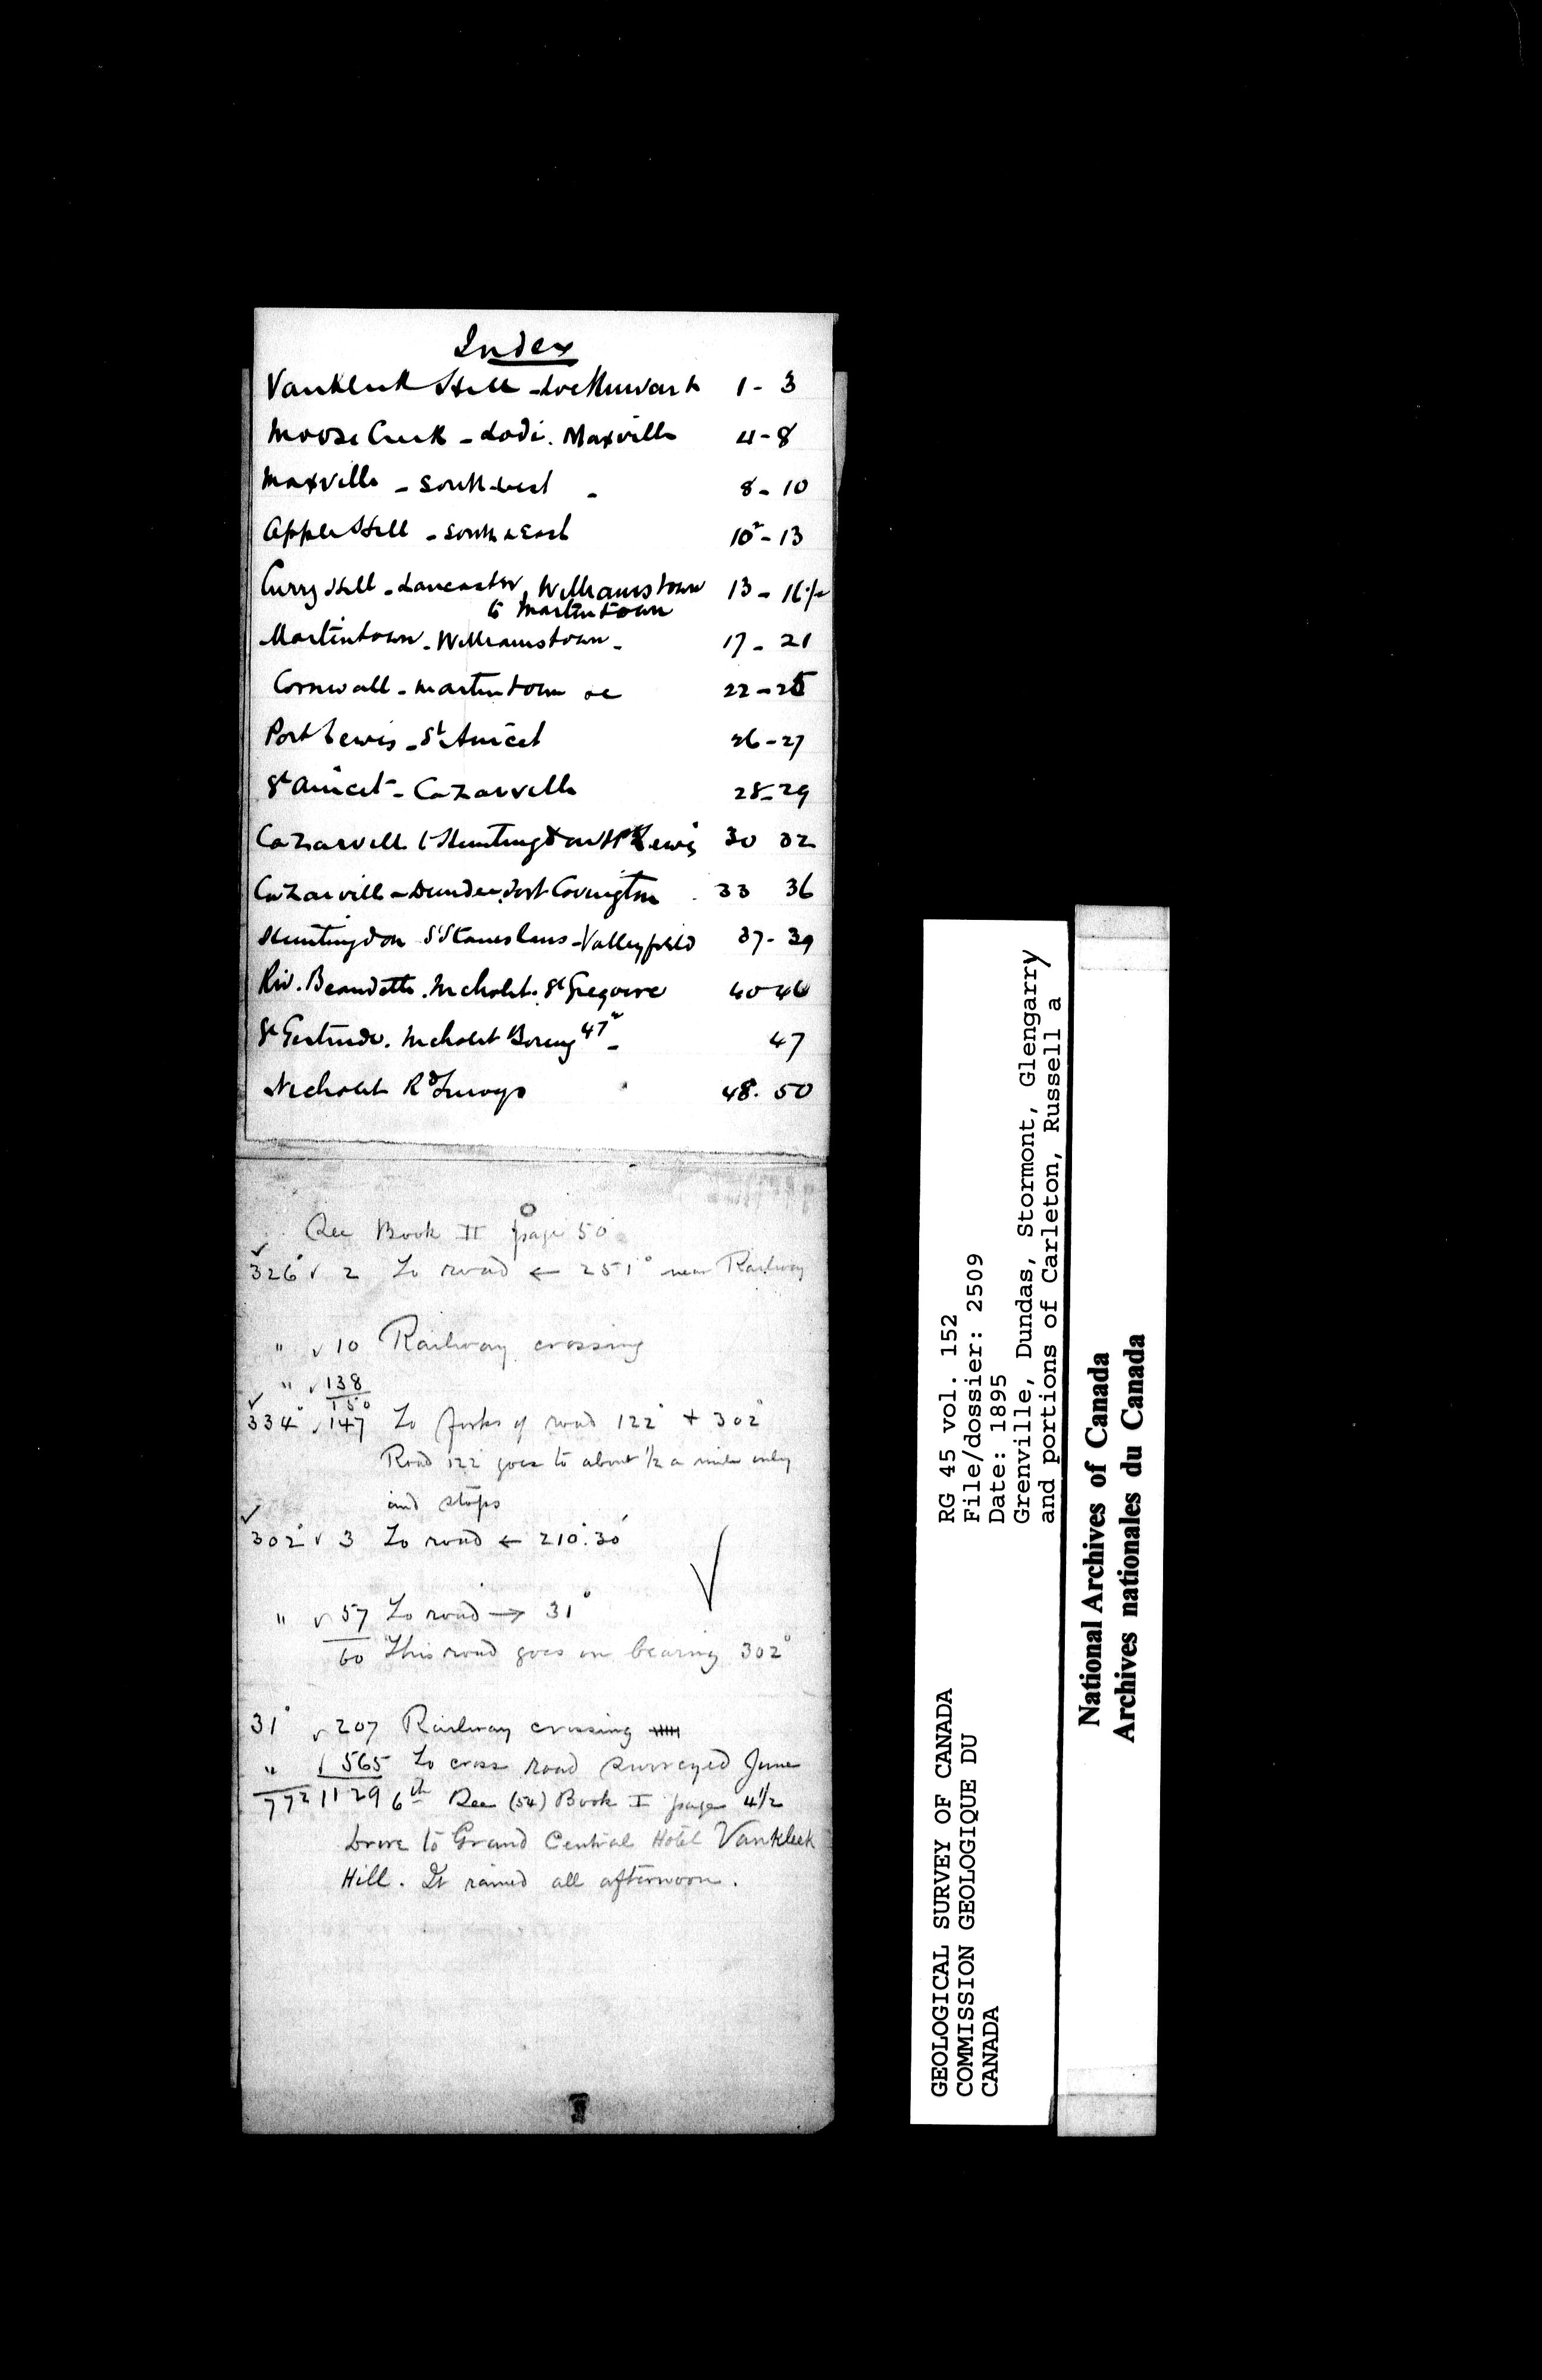 Index
Vankleek Hill - 1 - 3
Moose Creek - Lodi. Maxville 4 - 8
Maxville - South-west - 8 - 10
Apple Hill - South & East 10² - 13
Curry Hill - Lancaster, Williamstown 13 - 16½
to Martintown
Martintown - Williamstown - 17 - 21
Cornwall - Martintown &c 22 - 25
Port Lewis - St Anicet 26 - 27
St Anicet - Cazaville 28 - 29
Cazaville to Huntingdon Lewis 30 32
Cazaville - Dundee, Fort Covington 33 36
Huntingdon St Stanislaus - Valleyfield 37 - 39
Riv. Beaudette. Nicholet. St Gregoire 40-46
St Gertrude. Nicholet Boring 47² - 47
Nicholet Rd Surveys 48. 50
See Book II page 50
326° ✓ 2 To road ← 251° near Railway
" ✓ 10 Railway crossing
" ✓ 138
150
334° ✓ 147 To forks of road 122° + 302°
Road 122 goes to about ½ a mile only
and stops
302° ✓ 3 To road ← 210°.30'
" ✓ 57 To road → 31°
60 This road goes on bearing 302°
31° ✓ 207 Railway crossing
" ✓ 565 To cross road surveyed June
772 1129 6th See (54) Book I page 4½
Drove to Grand Central Hotel Vankleek
Hill. It rained all afternoon.
GEOLOGICAL SURVEY OF CANADA
COMMISSION GEOLOGIQUE DU
CANADA
RG 45 vol. 152
File/dossier: 2509
Date: 1895
Grenville, Dundas, Stormont, Glengarry
and portions of Carleton, Russell a
National Archives of Canada
Archives nationales du Canada